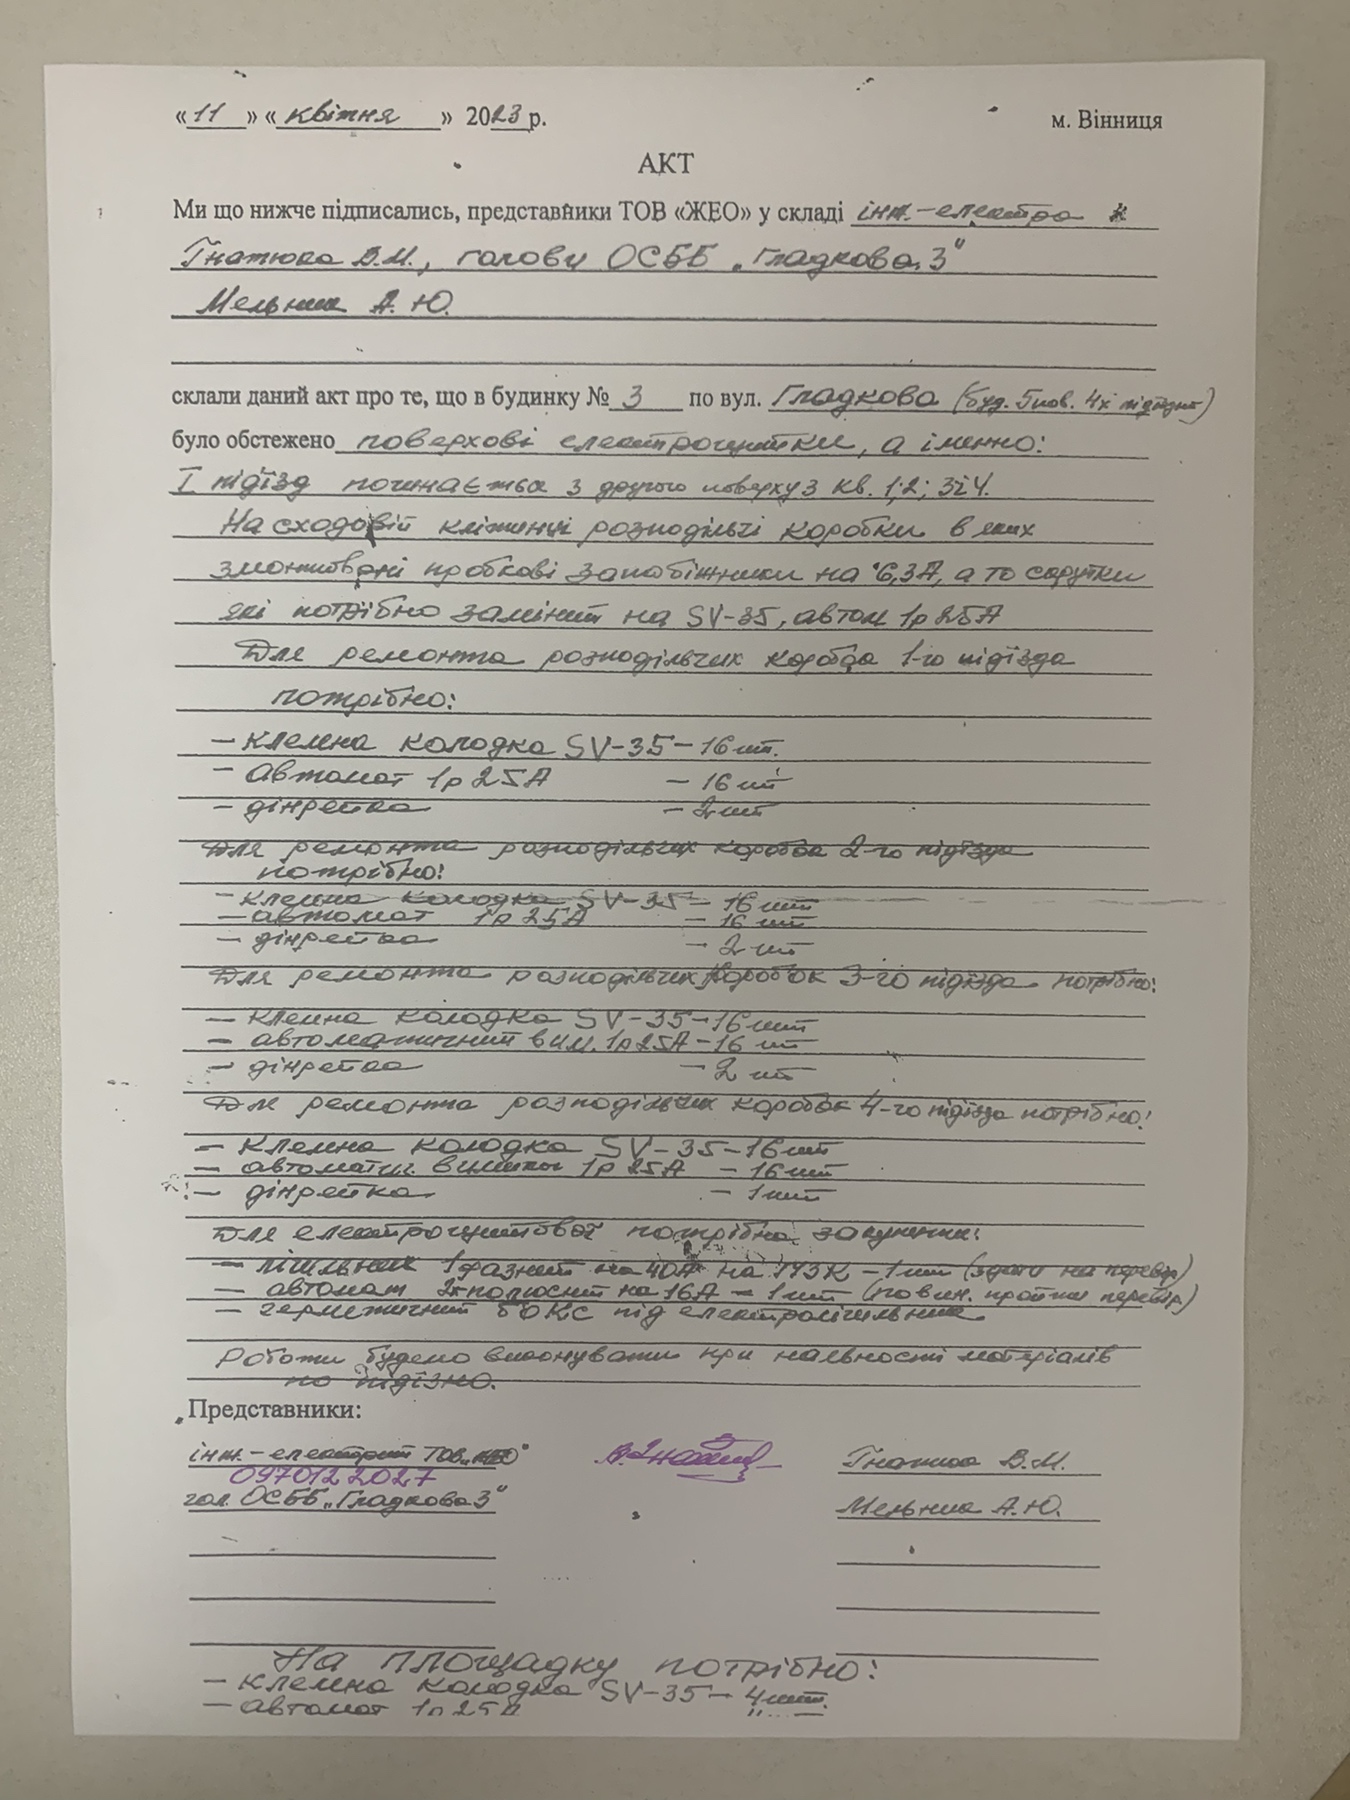 «11» «квітня» 2023 р. м. Вінниця
АКТ
Ми що нижче підписались, представники ТОВ «ЖЕО» у складі інж.-електро
Гнатюка В.М., голови ОСББ „Гладкова 3"
Мельник А.Ю.
склали даний акт про те, що в будинку № 3 по вул. Гладкова (буд. 5пов. 4х підїзн)
було обстежено поверхові електрощитки, а іменно:
І підїзд починається з другого поверху з кв. 1;2; 3і4.
На сходовій клітинці розподільчі коробки в яких
змонтовані пробкові запобіжники на 6,3А, а то скрутки
які потрібно замінит на SV-35, автом 1р 25А
Для ремонта розподільчих коробок 1-го підїзда
потрібно:
- клемна колодка SV-35 - 16 шт.
- автомат 1р 25А - 16 шт
- дінрейка - 2 шт
Для ремонта розподільчих коробок 2-го підїзда
потрібно:
- клемна колодка SV-35 - 16 шт
- автомат 1р 25А - 16 шт
- дінрейка - 2 шт
Для ремонта розподільчих коробок 3-го підїзда потрібно:
- клемна колодка SV-35 - 16 шт
- автоматичний вим. 1р 25А - 16 шт
- дінрейка - 2 шт
Для ремонта розподільчих коробок 4-го підїзда потрібно:
- клемна колодка SV-35 - 16 шт
- автоматич. 1р 25А - 16 шт
- дінрейка - 1 шт
Для електрощитової потрібно
- лічильник 1 фазний на 40А на - 1 шт (здати на перевір)
- автомат 2х полюсний на 16А - 1 шт (повин. пройти перевір)
- герметичний бокс під електролічильник
Роботи будемо виконувати при наявності матеріалів
по підїзно.
Представники:
інж.-електрик ТОВ „ЖЕО" Гнатюк В.М.
0970122027
гол. ОСББ „Гладкова 3" Мельник А.Ю.
На площадку потрібно:
- клемна колодка SV-35 - 4 шт.
- автомат 1р 25А